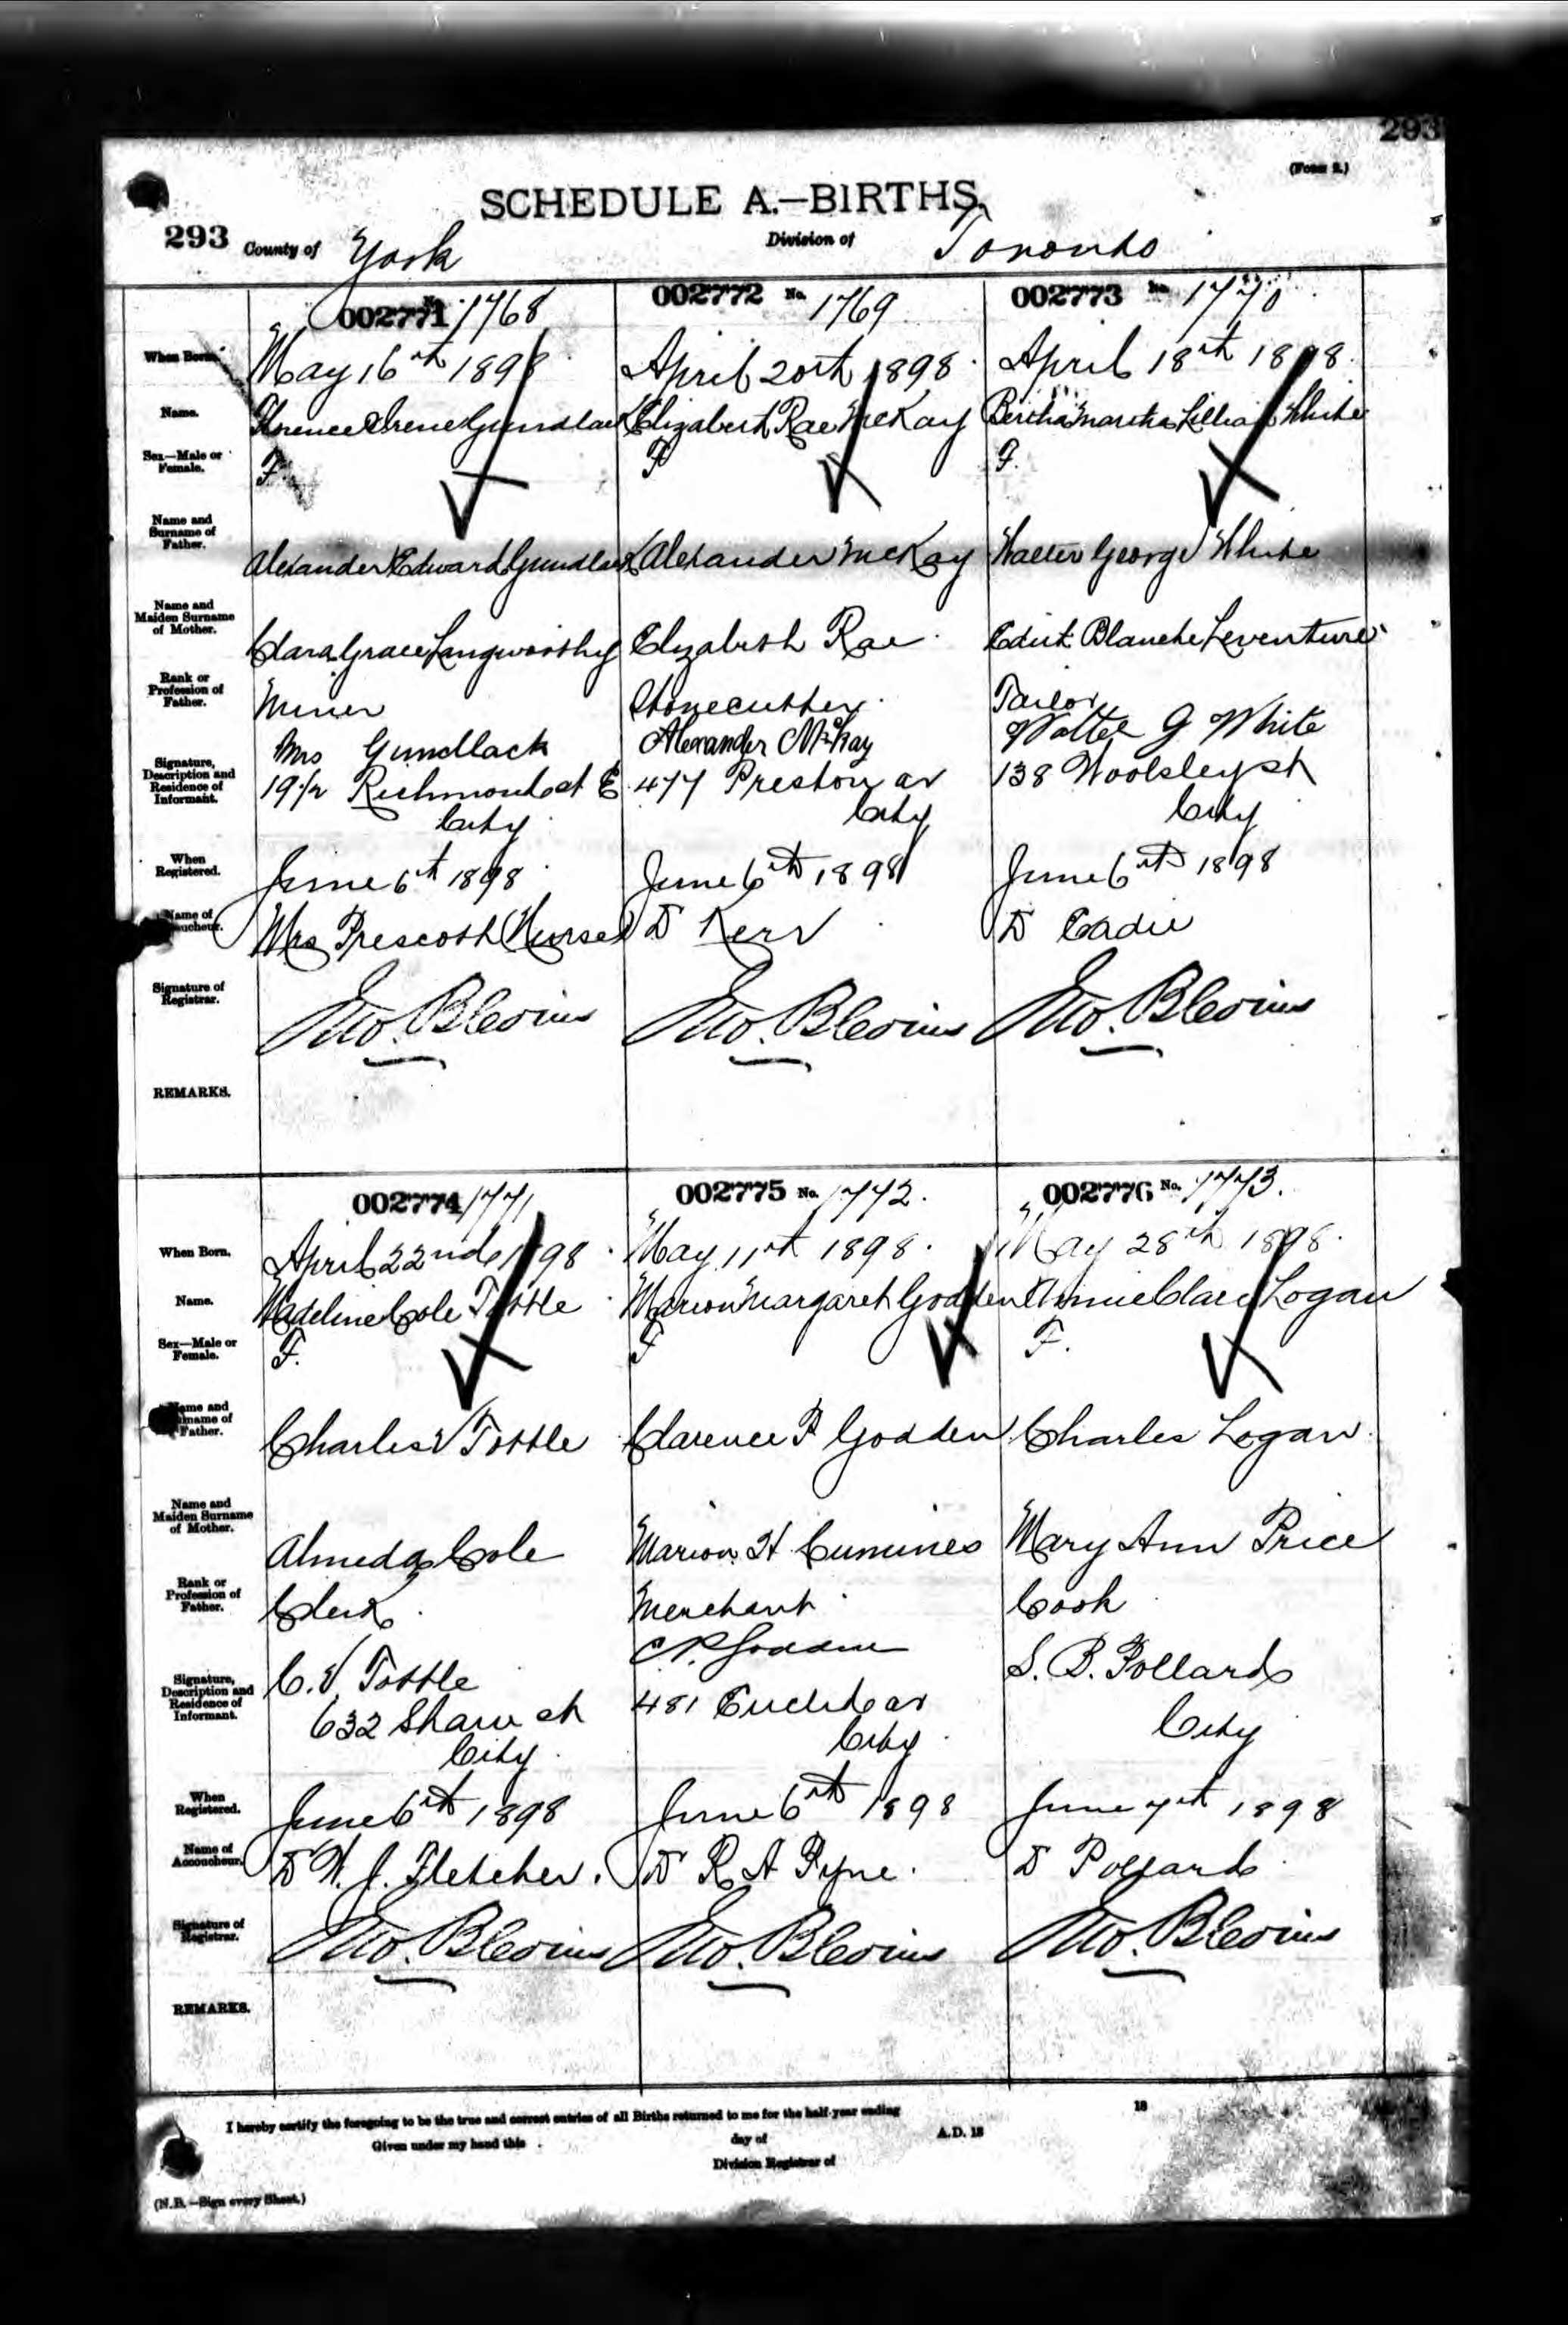 293
(Form 2.)
SCHEDULE A.—BIRTHS.
293 County of York Division of Toronto
002771 No. 1768 002772 No. 1769 002773 No. 1770
When Born. May 16th 1898 April 20th 1898 April 18th 1898
Name. Florence Irene Gundlack Elizabeth Rae McKay Bertha Martha Lillian White
Sex—Male or Female. F. F F.
Name and Surname of Father. Alexander Edward Gundlack Alexander McKay Walter George White
Name and Maiden Surname of Mother. Clara Grace Langworthy Elizabeth Rae Edith Blanche Leventure
Rank or Profession of Father. Miner Stonecutter Tailor
Signature, Description and Residence of Informant. Mrs Gundlack Alexander McKay Walter G White
19½ Richmond st E 477 Preston av 138 Woolsley st
City City City
When Registered. June 6th 1898 June 6th 1898 June 6th 1898
Name of Accoucheur. Mrs Prescott (Nurse) D Kerr D Eadie
Signature of Registrar. Jno. Blevins Jno. Blevins Jno. Blevins
REMARKS.
002774 1771 002775 No. 1772. 002776 No. 1773.
When Born. April 22nd 1898 May 11th 1898 May 28th 1898
Name. Madeline Cole Tottle Marion Margaret Godden Annie Clare Logan
Sex—Male or Female. F. F F.
Name and Surname of Father. Charles V Tottle Clarence P Godden Charles Logan
Name and Maiden Surname of Mother. Almeda Cole Marion H Cumines Mary Ann Price
Rank or Profession of Father. Clerk Merchant Cook
Signature, Description and Residence of Informant. C. V. Tottle C P. Godden S. B. Pollard
632 Shaw st 481 Euclid av City
City City
When Registered. June 6th 1898 June 6th 1898 June 7th 1898
Name of Accoucheur. D W. J. Fletcher. D R A Pyne. D Pollard
Signature of Registrar. Jno. Blevins Jno. Blevins Jno. Blevins
REMARKS.
I hereby certify the foregoing to be the true and correct entries of all Births returned to me for the half-year ending 18
Given under my hand this day of A.D. 18
Division Registrar of
(N.B.—Sign every Sheet.)